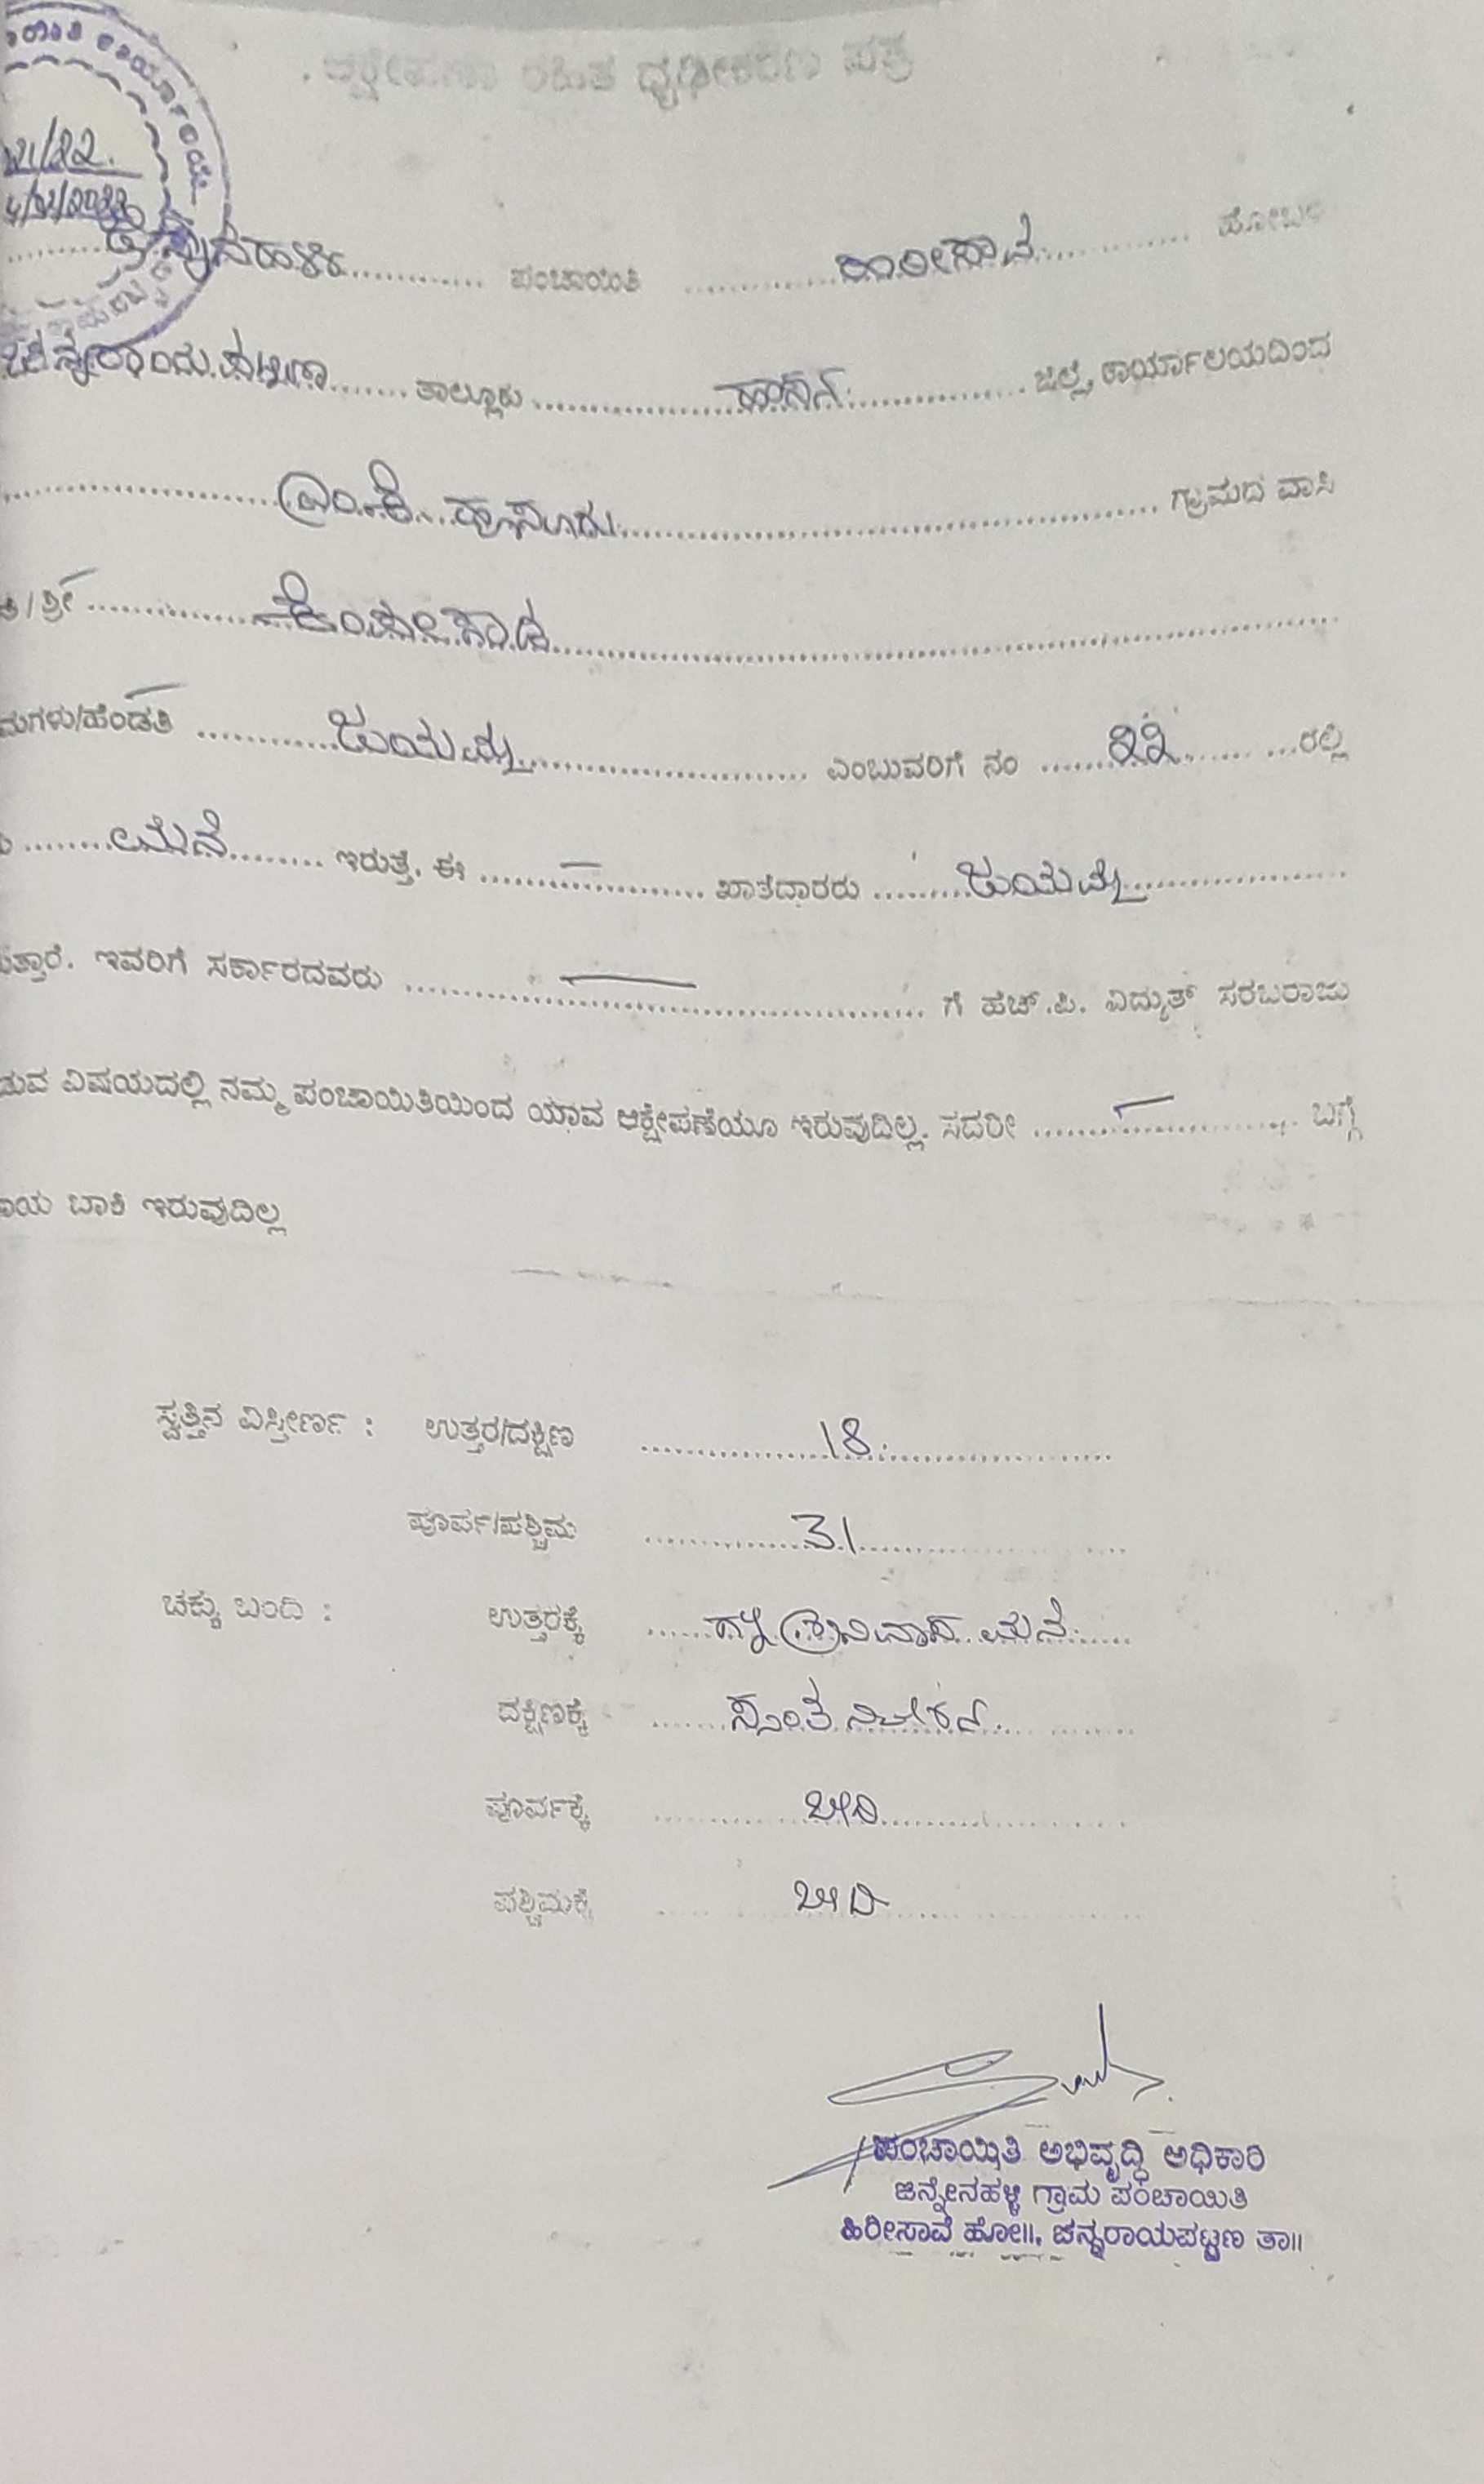 ಆಕ್ಷೇಪಣಾ ರಹಿತ ಧೃಢೀಕರಣ ಪತ್ರ
21/22.
ಪಂಚಾಯಿತಿ ಹಿರೀಸಾವೆ ಹೋಬಳಿ
ಚನ್ನರಾಯಪಟ್ಟಣ ತಾಲ್ಲೂಕು ಹಾಸನ ಜಿಲ್ಲೆ, ಕಾರ್ಯಾಲಯದಿಂದ
ಎಂ.ಕೆ. ಹೊಸೂರು ಗ್ರಾಮದ ವಾಸಿ
ತಿ/ಶ್ರೀ ಕೆಂಪೇಗೌಡ
ಮಗಳು/ಹೆಂಡತಿ ಜಯಮ್ಮ ಎಂಬುವರಿಗೆ ನಂ ೩೩ ರಲ್ಲಿ
ಮನೆ ಇರುತ್ತೆ. ಈ — ಖಾತೆದಾರರು ಜಯಮ್ಮ
ತ್ತಾರೆ. ಇವರಿಗೆ ಸರ್ಕಾರದವರು — ಗೆ ಹೆಚ್.ಪಿ. ವಿದ್ಯುತ್ ಸರಬರಾಜು
ಡುವ ವಿಷಯದಲ್ಲಿ ನಮ್ಮ ಪಂಚಾಯಿತಿಯಿಂದ ಯಾವ ಆಕ್ಷೇಪಣೆಯೂ ಇರುವುದಿಲ್ಲ. ಸದರೀ — ಬಗ್ಗೆ
ಾಯ ಬಾಕಿ ಇರುವುದಿಲ್ಲ
ಸ್ವತ್ತಿನ ವಿಸ್ತೀರ್ಣ : ಉತ್ತರ/ದಕ್ಷಿಣ 18
ಪೂರ್ವ/ಪಶ್ಚಿಮ 31
ಚಕ್ಕು ಬಂದಿ : ಉತ್ತರಕ್ಕೆ ಶ್ರೀನಿವಾಸ ಮನೆ
ದಕ್ಷಿಣಕ್ಕೆ ಸ್ವಂತ ನಿವೇಶನ.
ಪೂರ್ವಕ್ಕೆ ಬೀದಿ
ಪಶ್ಚಿಮಕ್ಕೆ ಬೀದಿ
ಪಂಚಾಯಿತಿ ಅಭಿವೃದ್ಧಿ ಅಧಿಕಾರಿ
ಜಿನ್ನೇನಹಳ್ಳಿ ಗ್ರಾಮ ಪಂಚಾಯಿತಿ
ಹಿರೀಸಾವೆ ಹೋ||, ಚನ್ನರಾಯಪಟ್ಟಣ ತಾ||